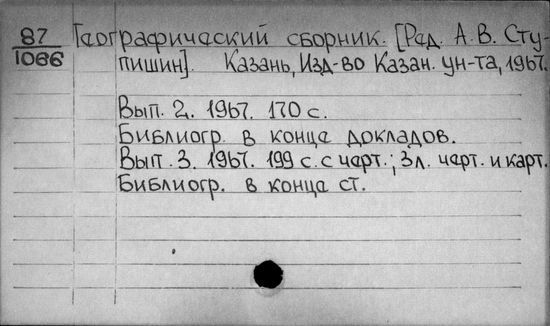 87 Географический сборник. [Ред. А.В. Сту-
1066 пишин]. Казань, Изд-во Казан. ун-та, 1967.
Вып. 2. 1967. 170 с.
Библиогр. в конце докладов.
Вып. 3. 1967. 199 с. с черт.; 3 л. черт. и карт.
Библиогр. в конце ст.